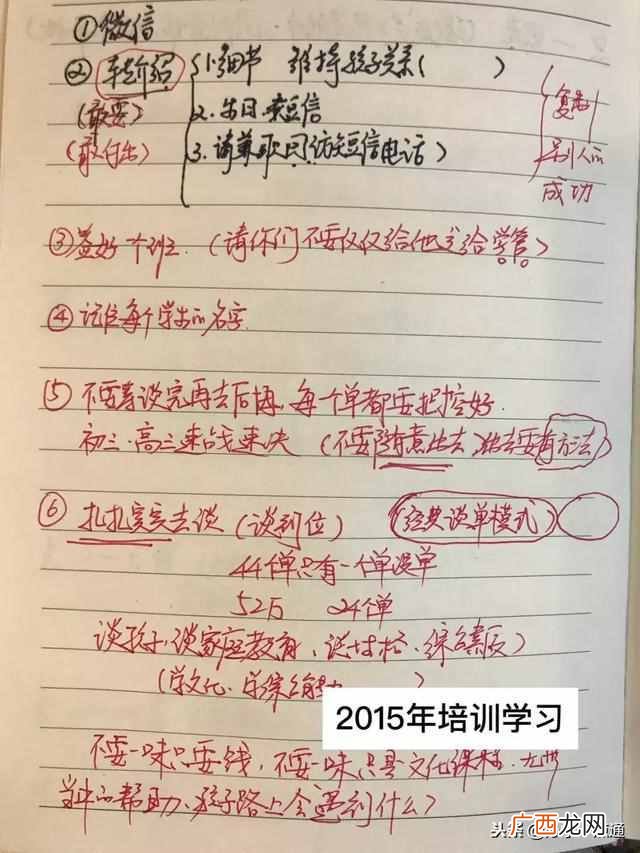 ①微信
②转介绍 1.细节 维持孩子关系( )
(敢要) 2.生日 来短信
(敢付出) 3. 请兼职回访短信电话)
复制
别人的
成功
③签好个班.(请你们不要仅仅给他 给学管)
④记住每个学生的名字.
⑤不要等谈完再去后悔,每个单都要把控好.
初三.高三速战速决 (不要随意出去 出去要有方法)
⑥扎扎实实去谈 (谈到位) (经典谈单模式)
44个单只有一个单退单
52万 24个单
谈孩子,谈家庭教育、谈性格、综合素质)
(学文化.学综合能力 )
2015年培训学习
不要一味只要钱,不要一味只是文化课程.
的帮助.孩子路上会遇到什么?
头条@ 通
广西龙网